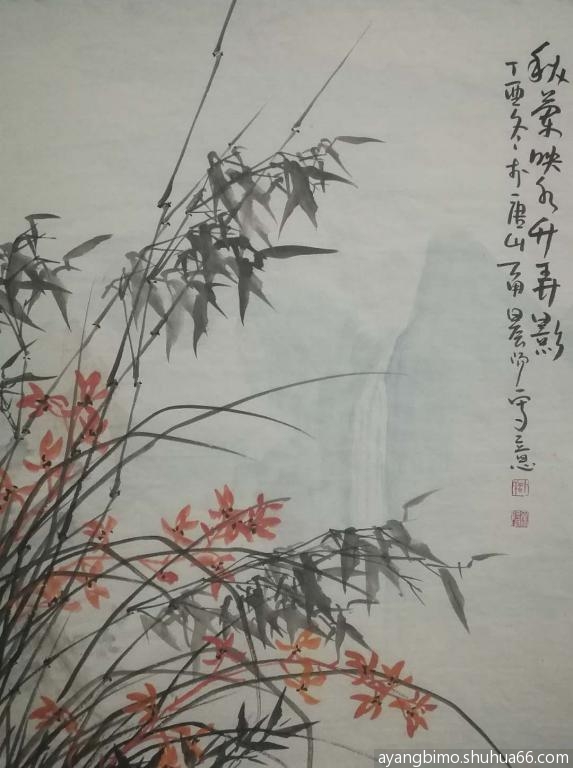 秋兰映水竹弄影
丁酉冬于唐山 晨 写意
ayangbimo.shuhua66.com